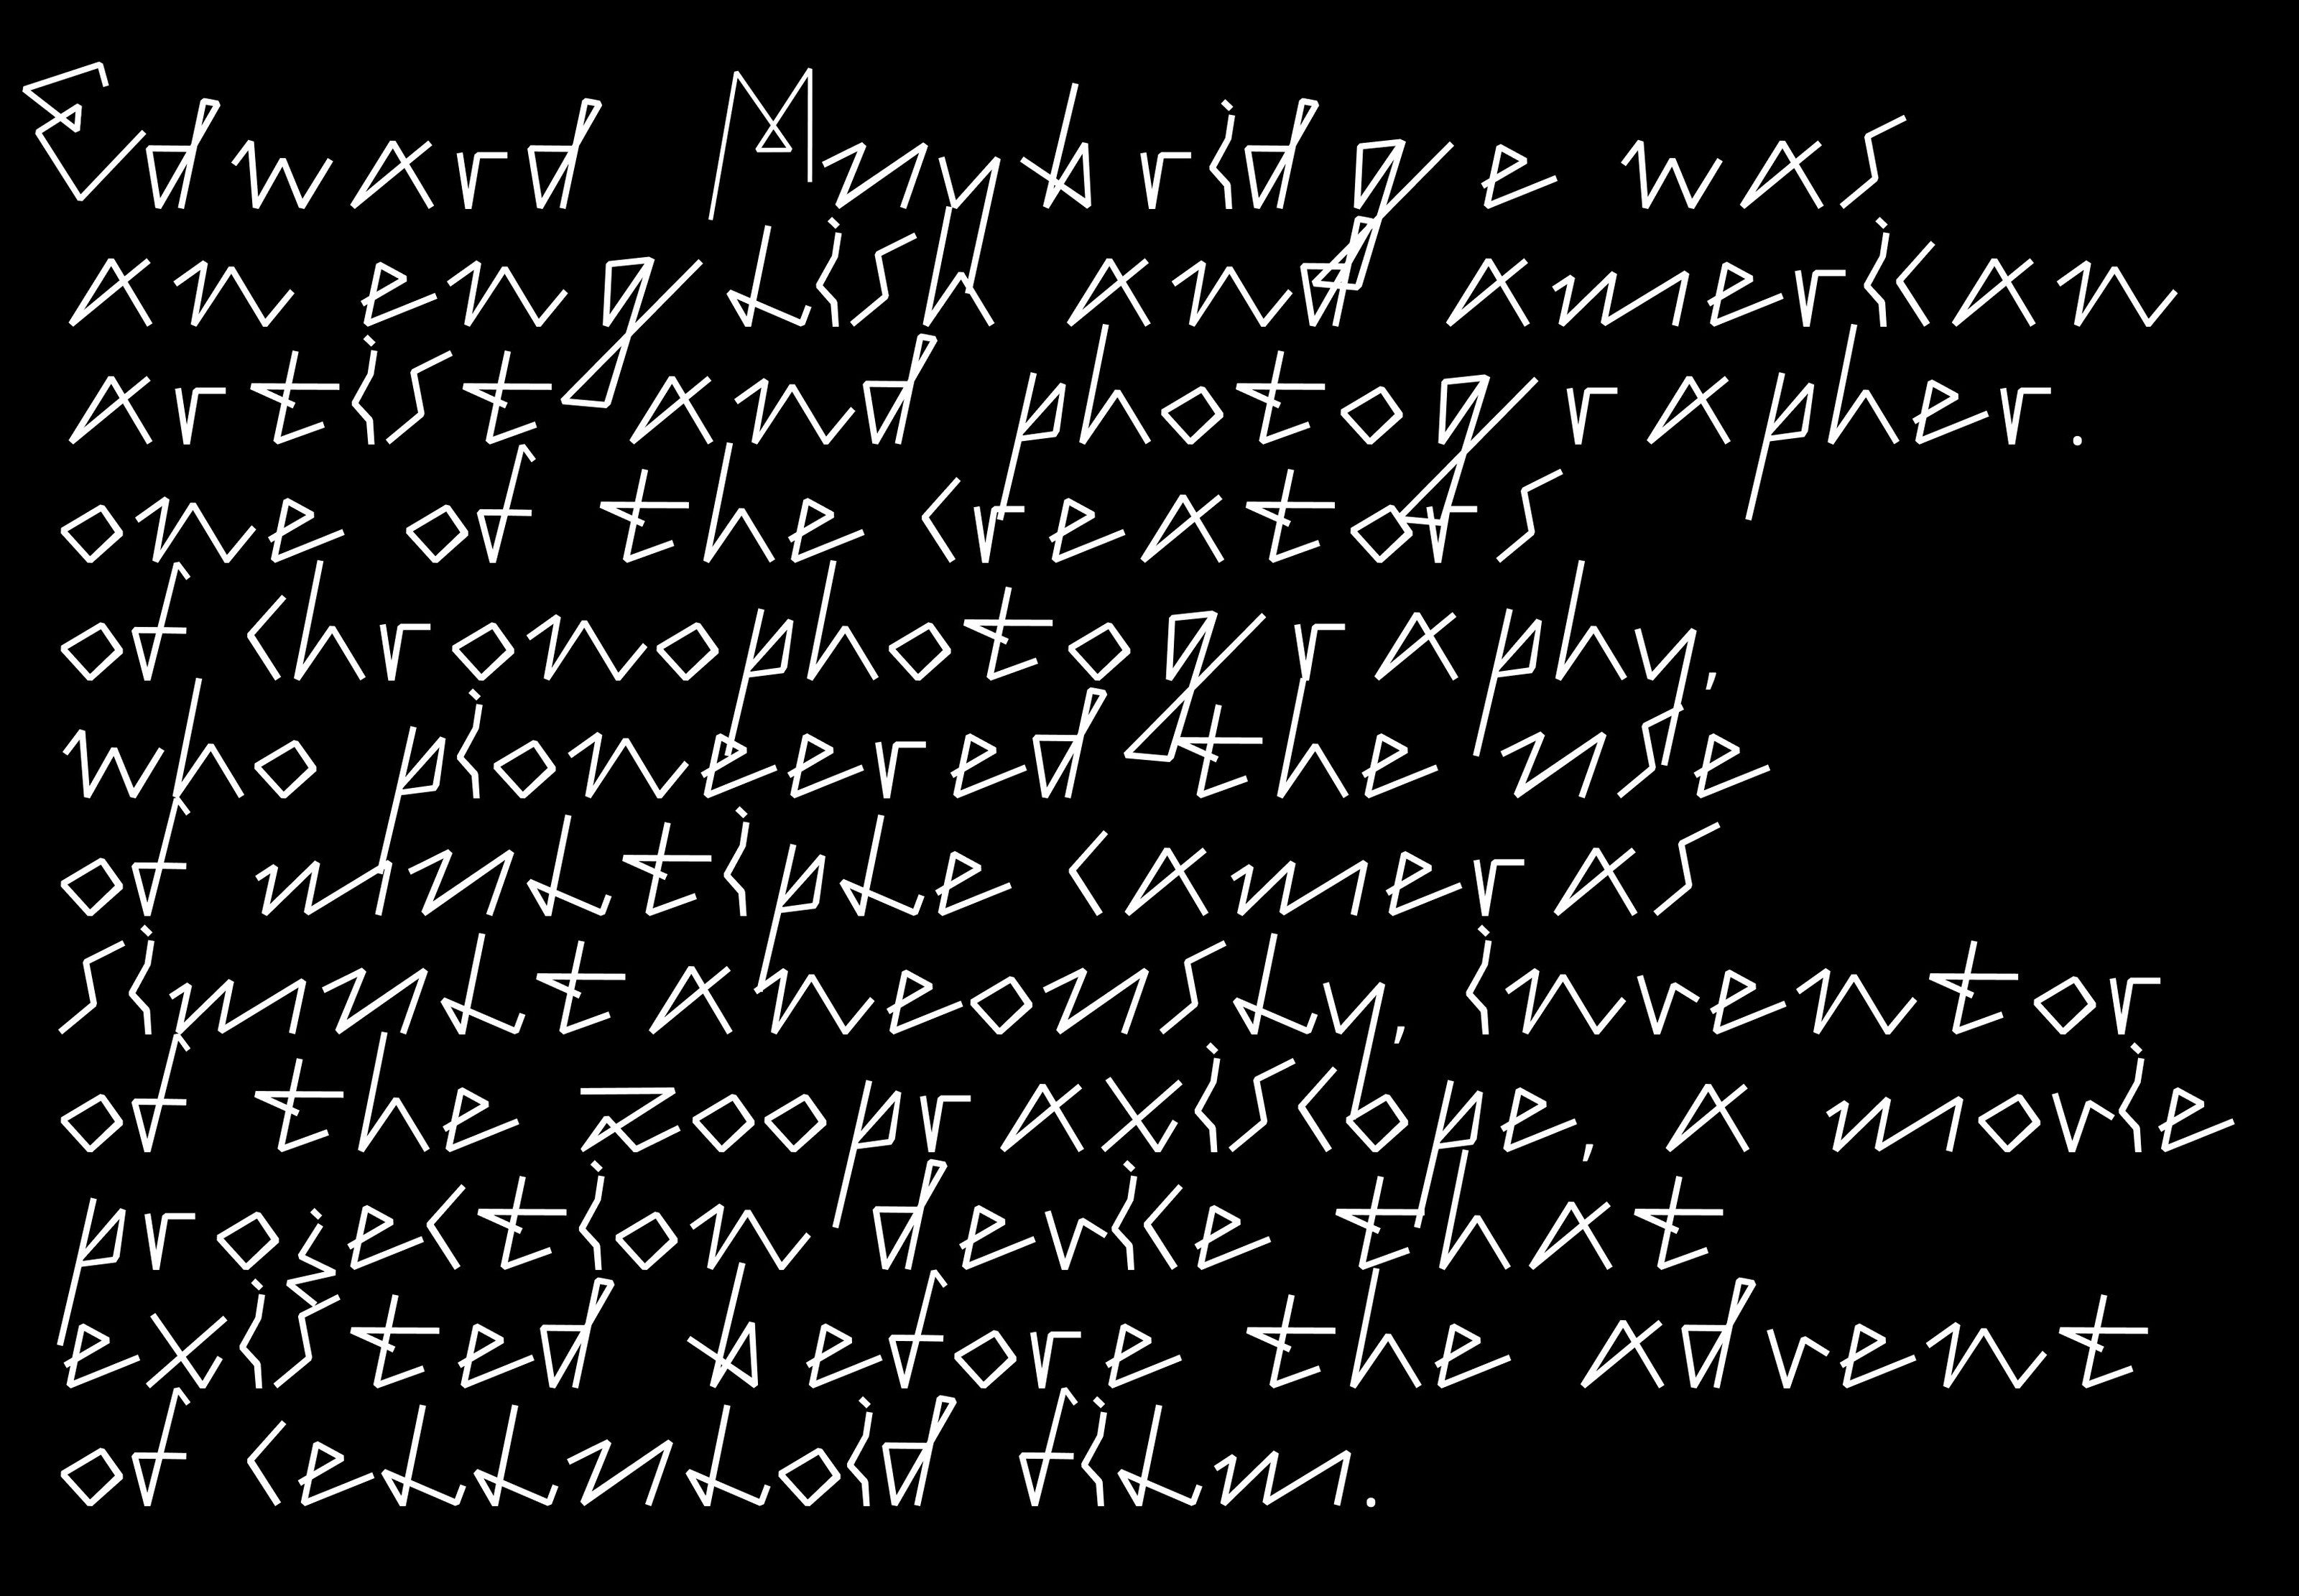 Edward Muybridge was
an english and american
artist and photographer.
one of the creators
of chronophotography,
who pioneered the use
of multiple cameras
simultaneously, inventor
of the zoopraxiscope, a movie
projection device that
existed before the advent
of celluloid film.